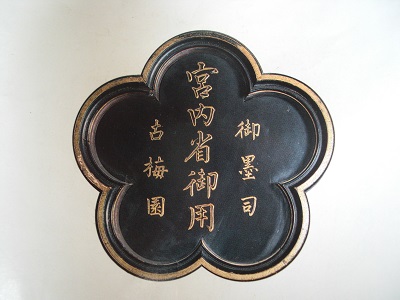 御墨司
宮内省御用
古梅園